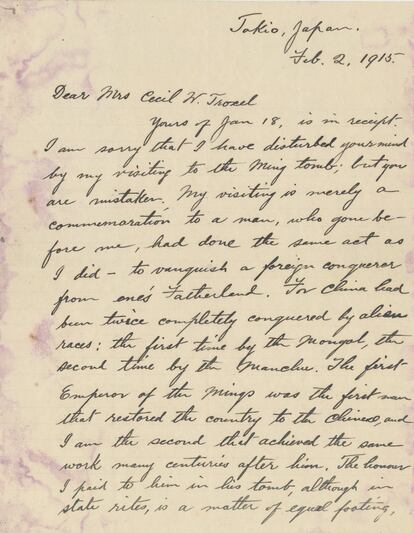 Tokio, Japan.
Feb. 2, 1915.
Dear Mrs Cecil W. Troxel
Yours of Jan 18, is in receipt.
I am sorry that I have disturbed your mind
by my visiting to the Ming tomb; but you
are mistaken. My visiting is merely a
commemoration to a man, who gone be-
fore me, had done the same act as
I did – to vanquish a foreign conquerer
from one's Fatherland. For China had
been twice completely conquered by alien
races: the first time by the Mongol, the
second time by the Manchu. The first
Emperor of the Mings was the first man
that restored the country to the Chinese, and
I am the second that achieved the same
work many centuries after him. The honour
I paid to him in his tomb, although in
state rites, is a matter of equal footing,